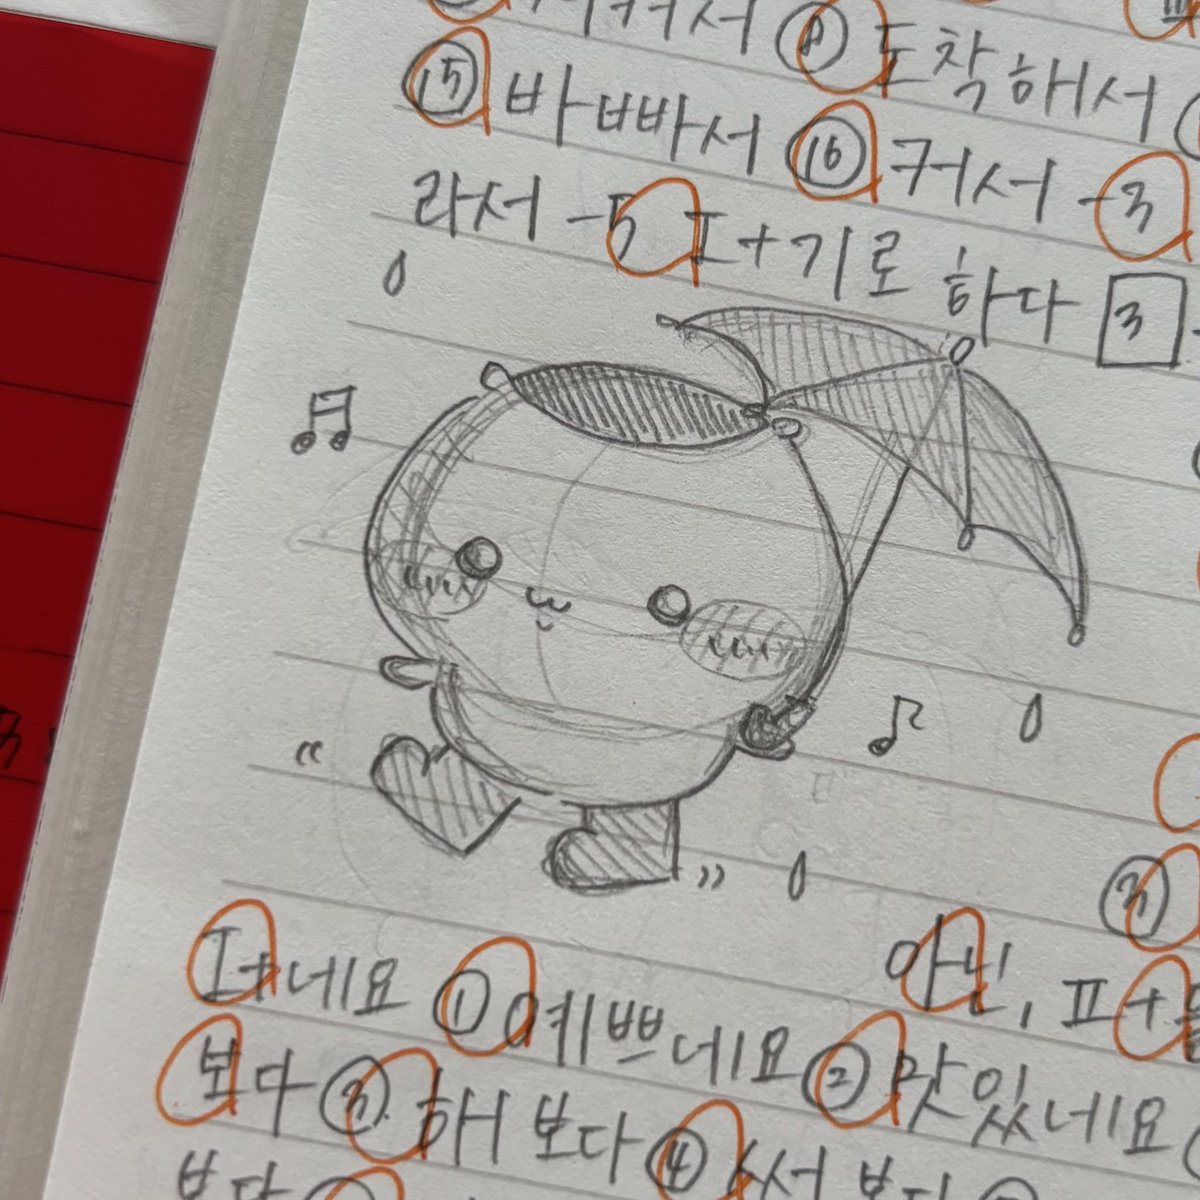 ⑧ 도착해서
⑮ 바빠서 ⑯ 커서 -3
라서 -5 I+기로 하다 3
3
아닌, II+
I+네요 ① 예쁘네요 ② 맛있네요
보다 ③ 해 보다 ④ 써 보다
보다